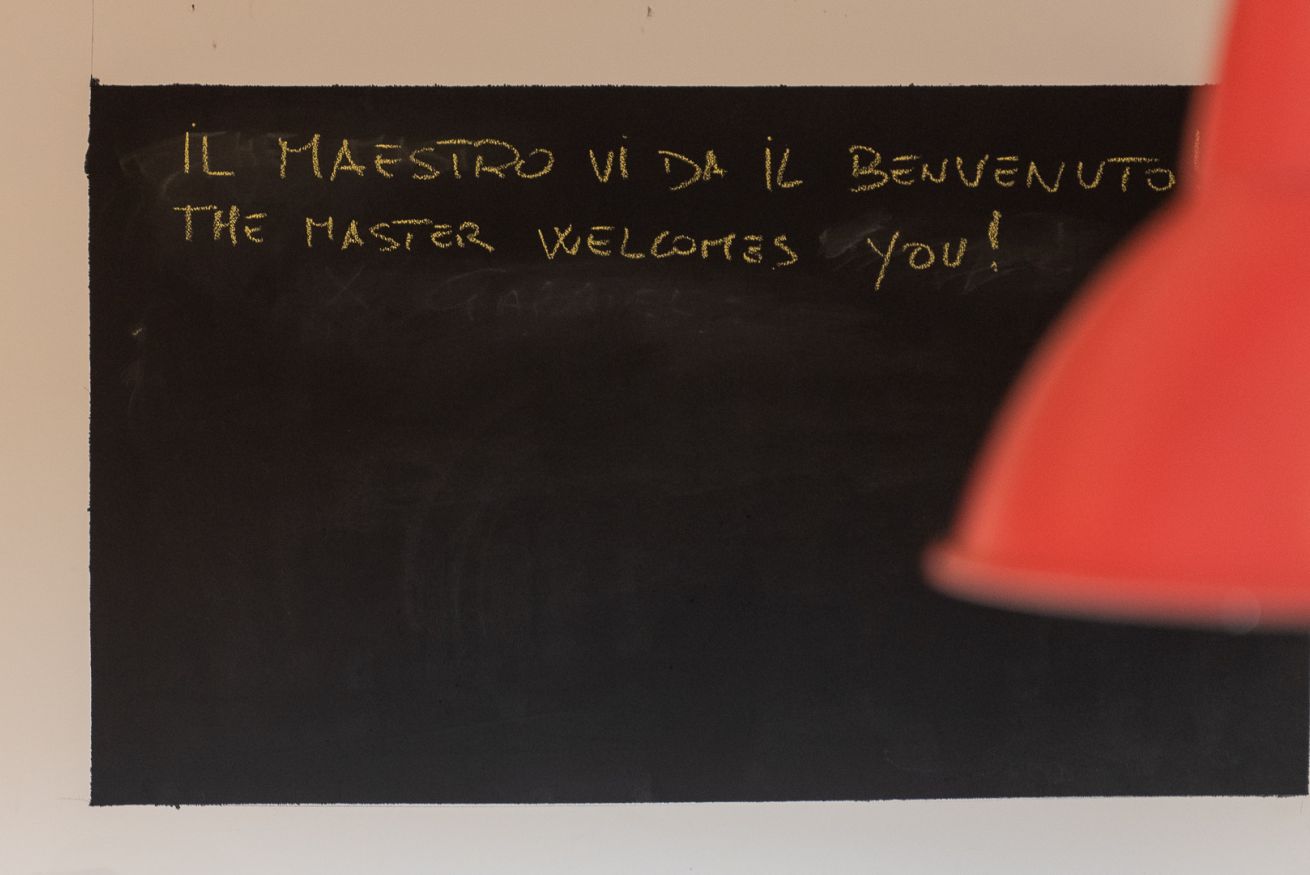 IL MAESTRO VI DA IL BENVENUTO!
THE MASTER WELCOMES YOU!